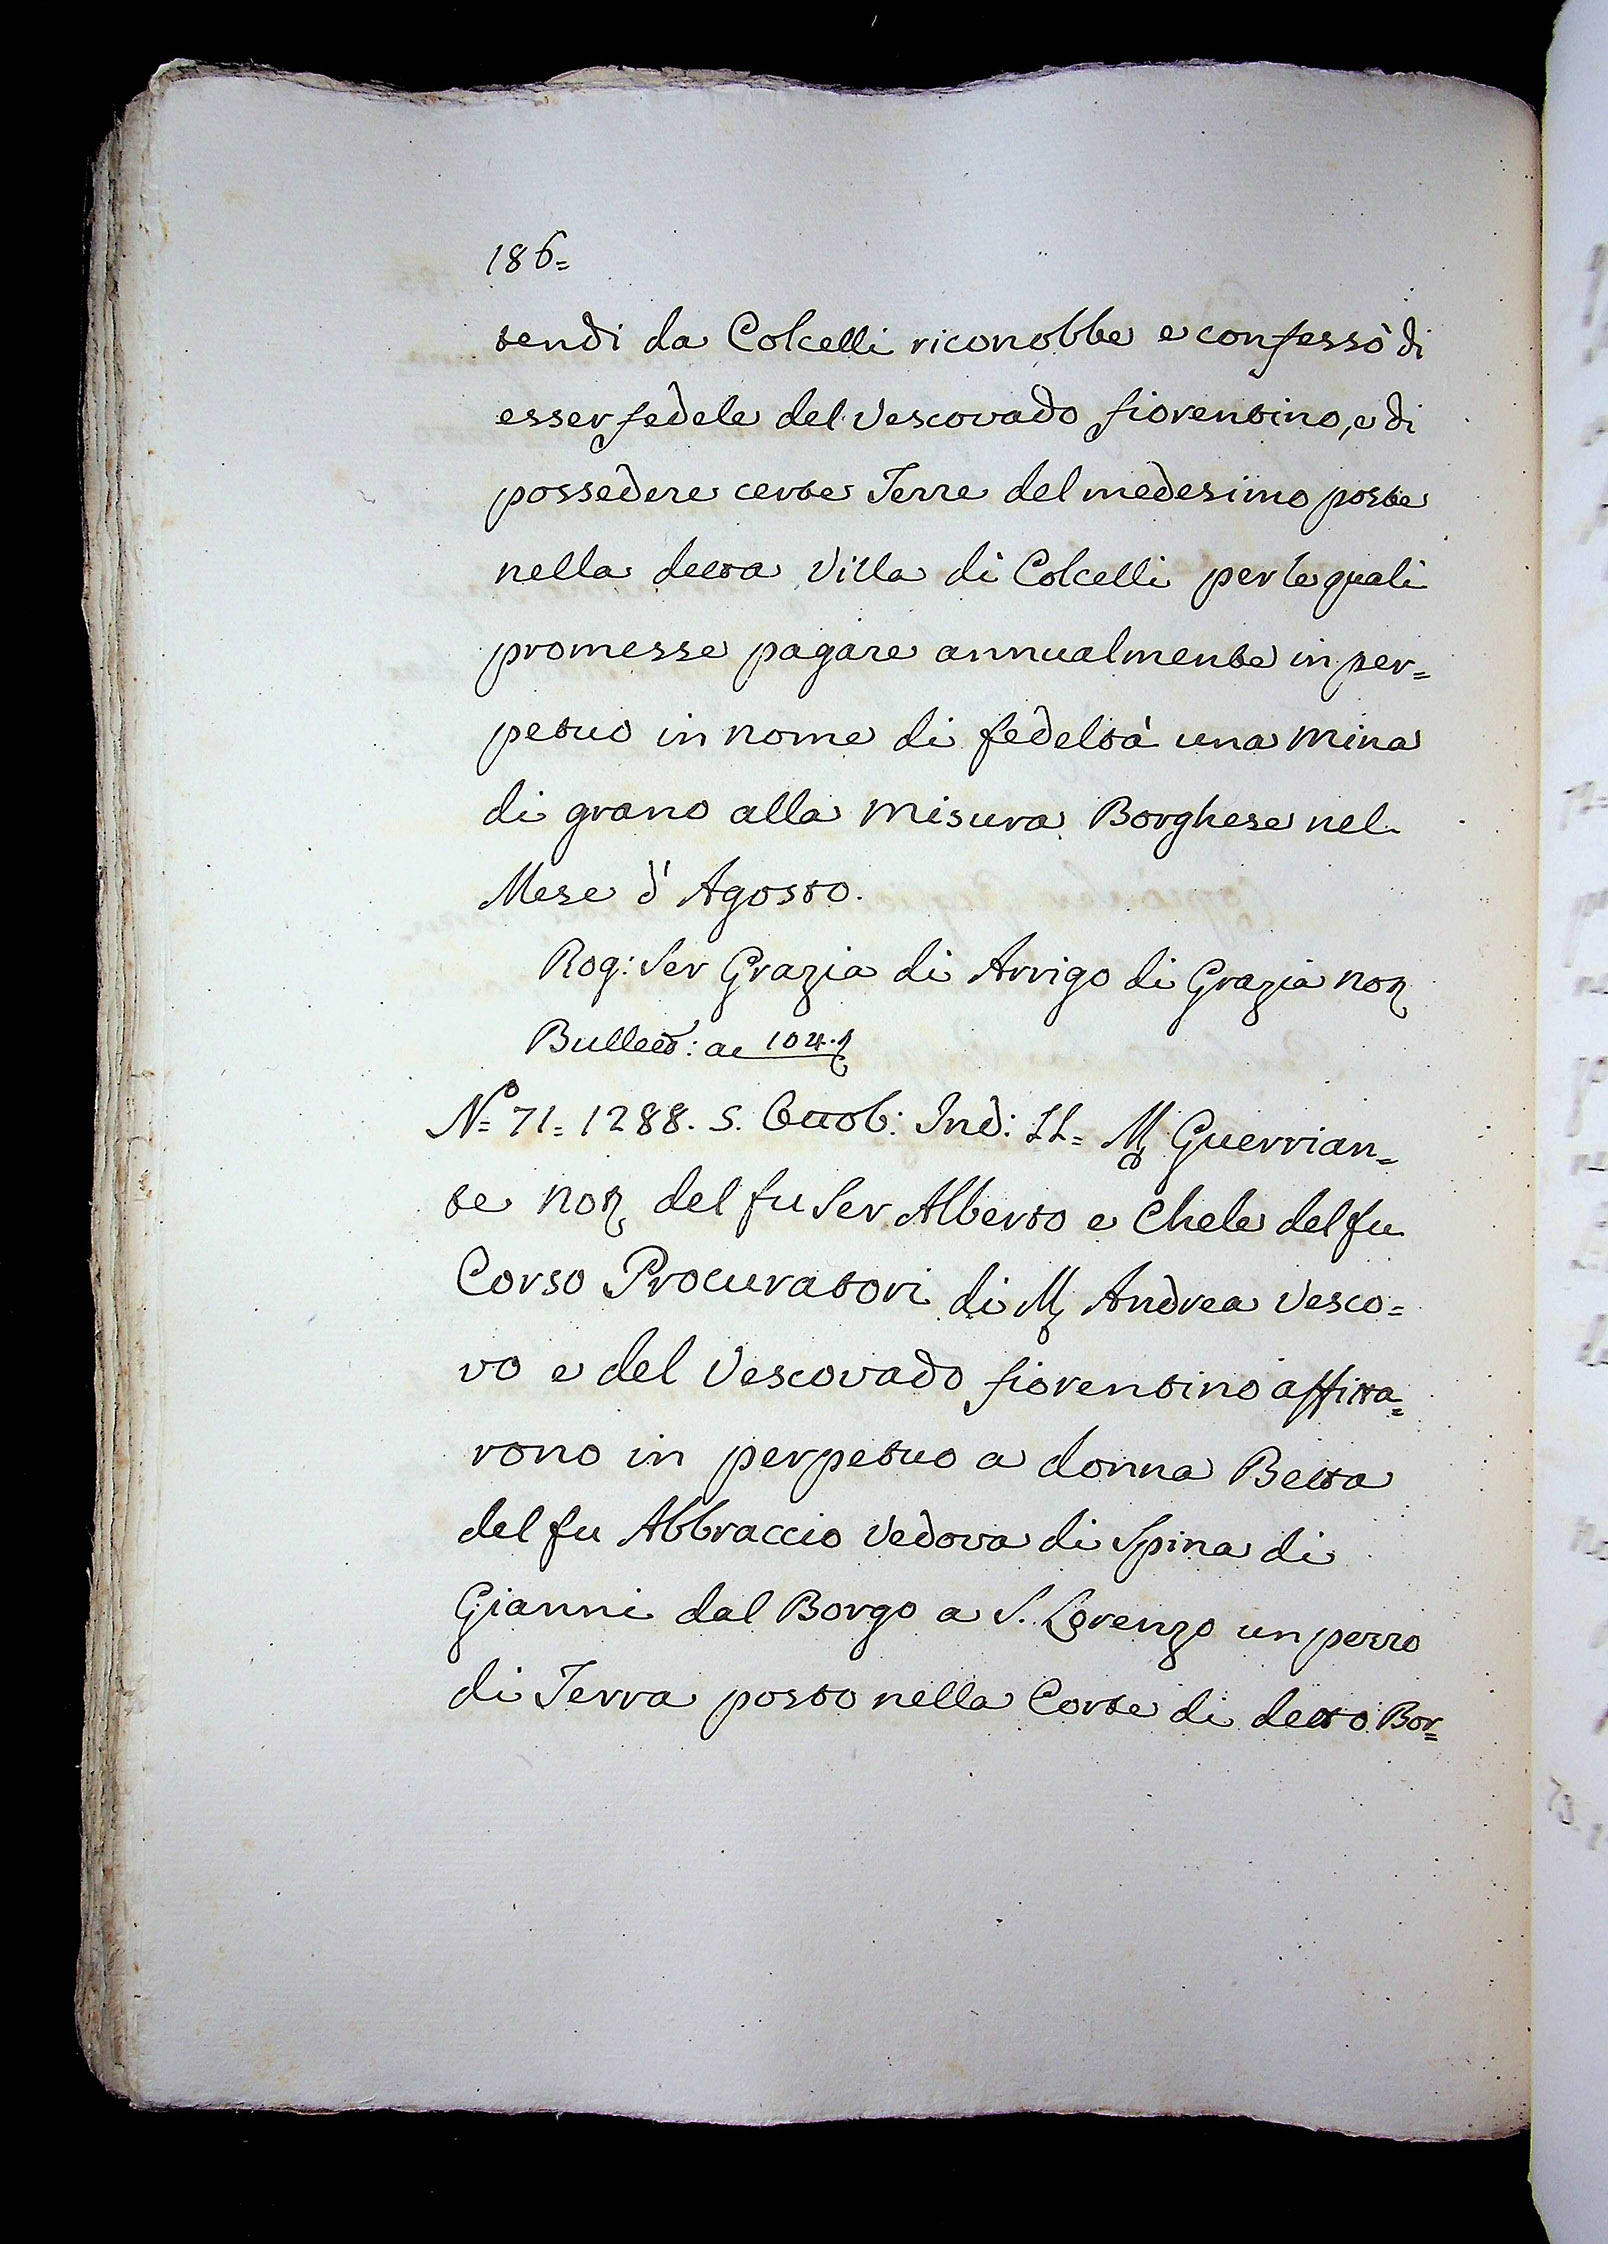 186=
tendi da Colcelli riconobbe e confessò di
esser fedele del Vescovado fiorentino, e di
possedere certe Terre del medesimo poste
nella detta Villa di Colcelli per le quali
promesse pagare annualmente in per=
petuo in nome di fedeltà una mina
di grano alla misura Borghese nel
Mese d'Agosto.
Rog: Ser Grazia di Arrigo di Grazia not
Bullett: ac 104.t
N.º 71= 1288. 5. Ottob: Ind: II= M Guerrian=
te not del fu Ser Alberto e Chele del fu
Corso Procuratori di M Andrea Vesco=
vo e del Vescovado fiorentino affitta=
rono in perpetuo a donna Betta
del fu Abbraccio Vedova di Spina di
Gianni dal Borgo a S. Lorenzo un pezzo
di Terra posto nella Corte di detto Bor=